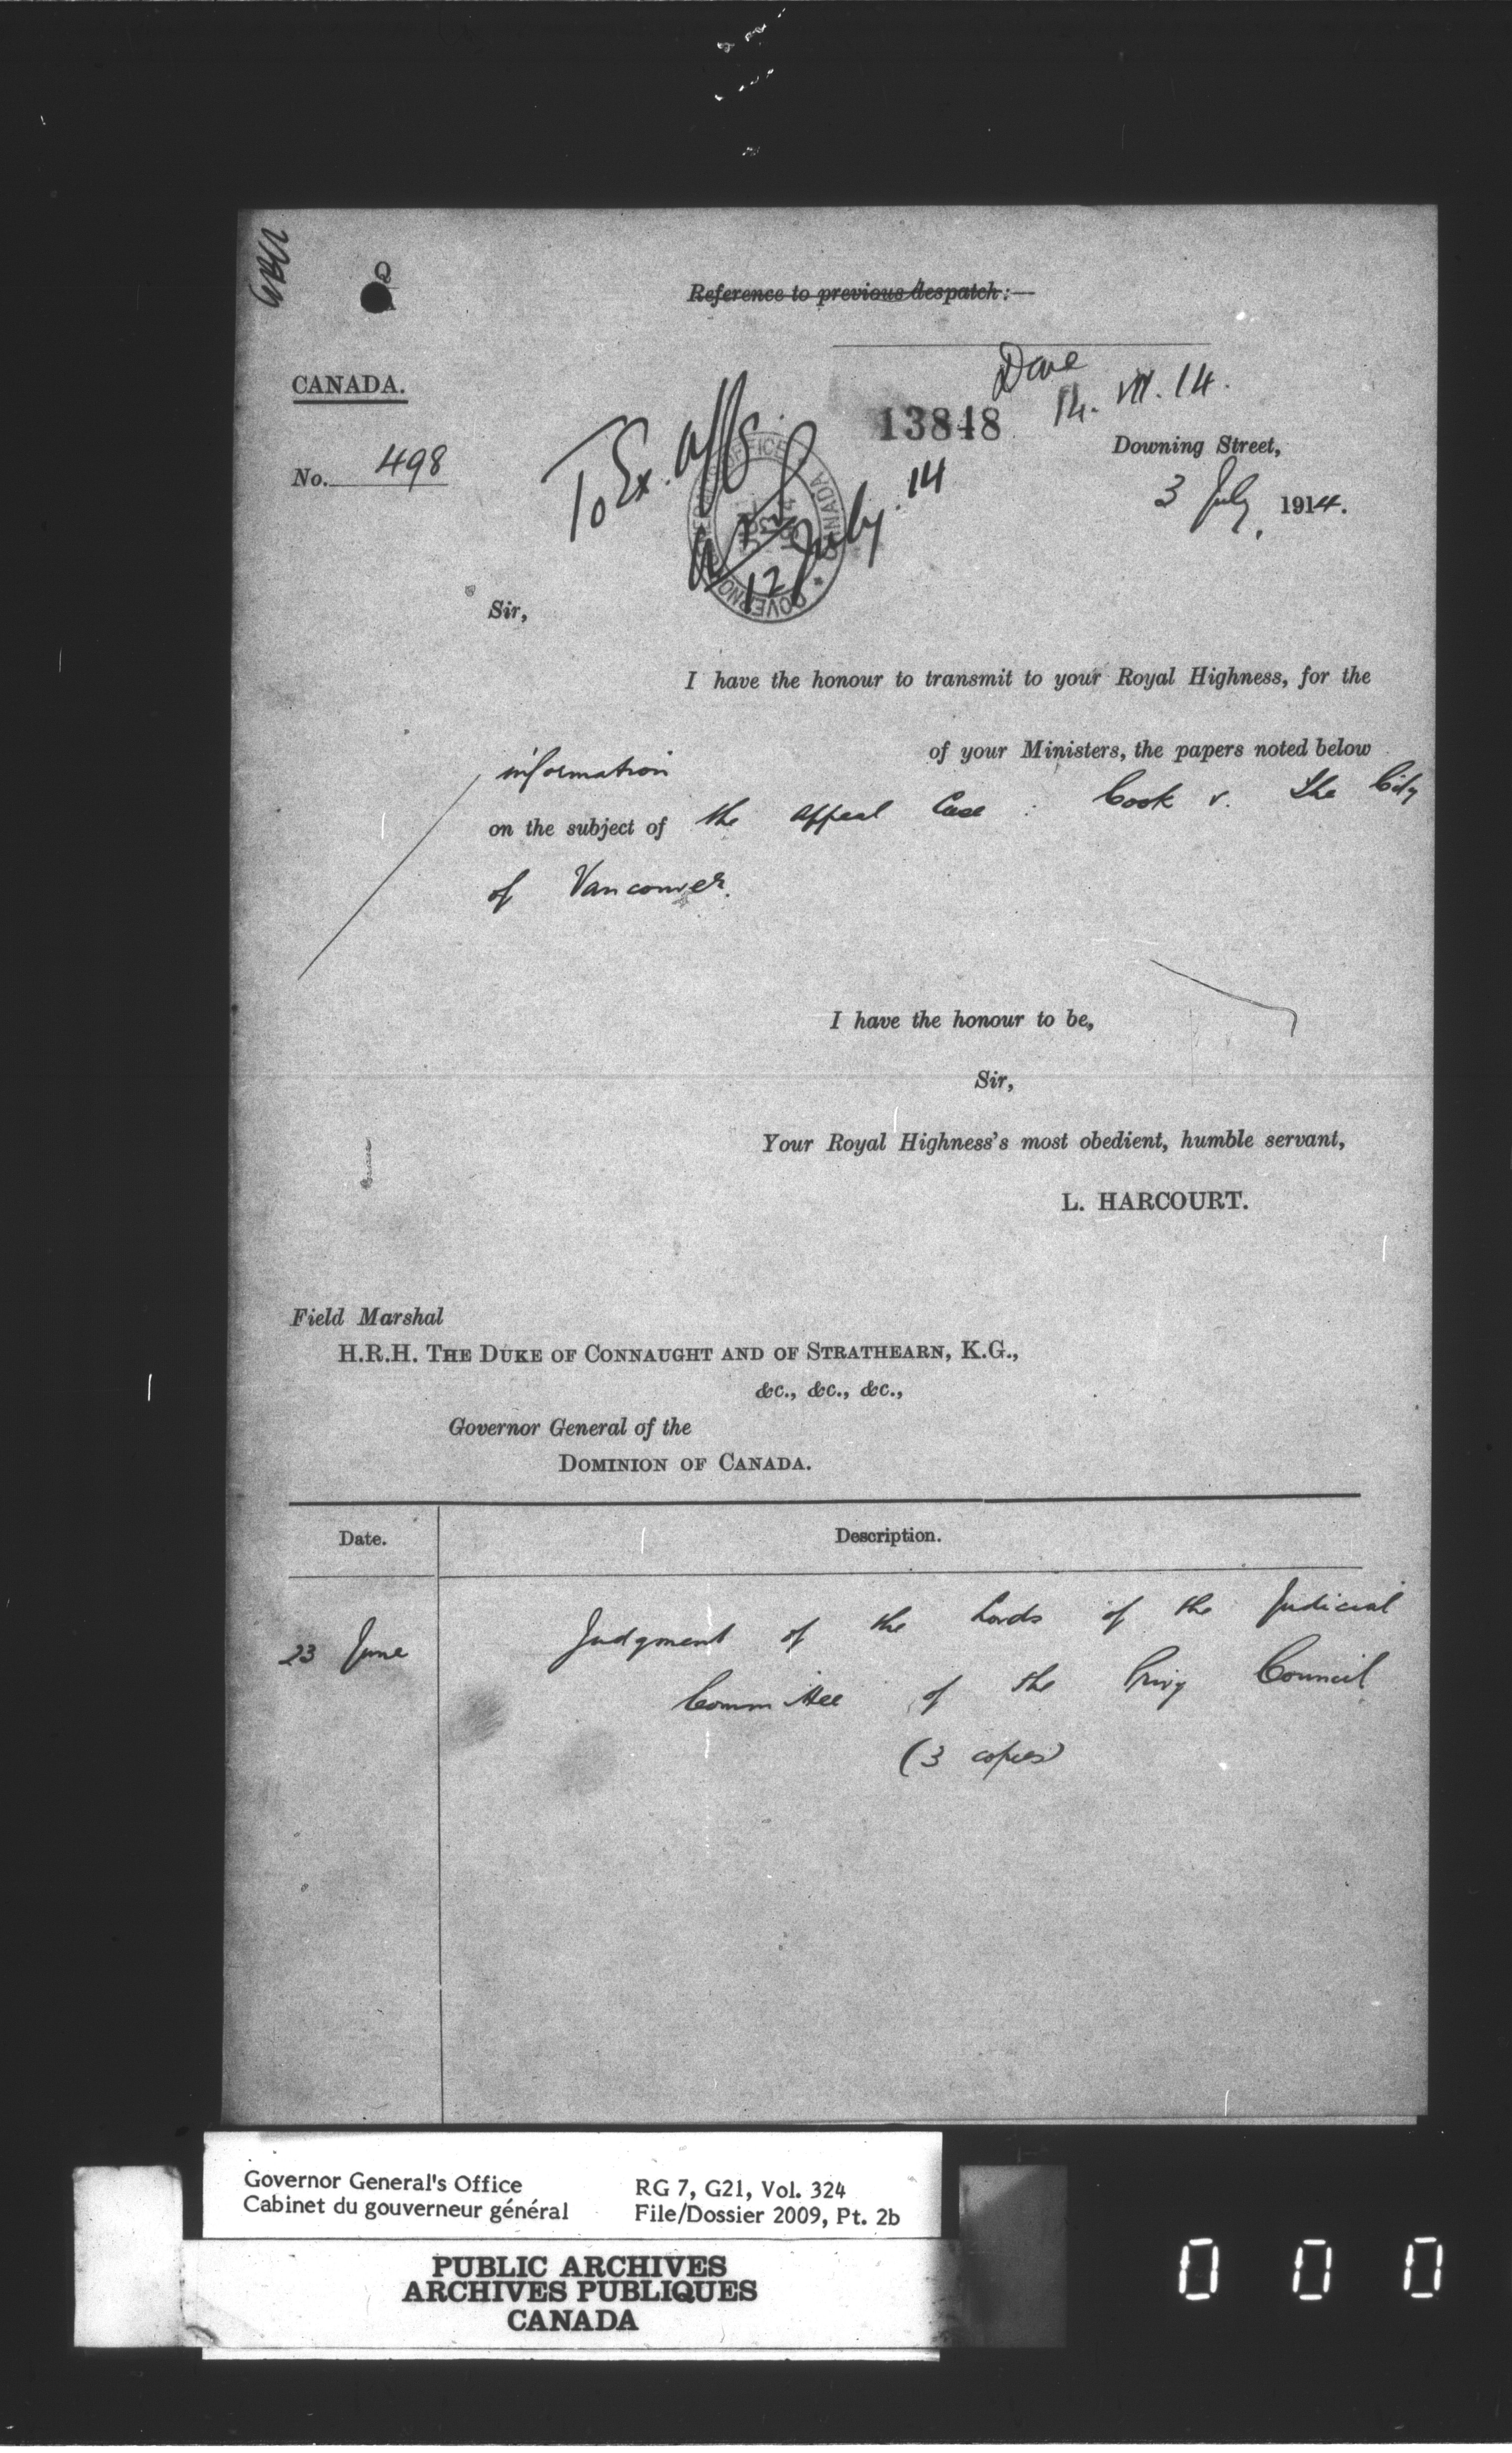 Q
Reference to previous despatch:—
CANADA.
13848
14. VII. 14.
No. 498
To Ex. affs.
Downing Street,
3 July, 1914.
GOVERNOR OFFICE CANADA
12 July. 14
Sir,
I have the honour to transmit to your Royal Highness, for the
information of your Ministers, the papers noted below
on the subject of the Appeal Case: Cook v. The City
of Vancouver.
I have the honour to be,
Sir,
Your Royal Highness's most obedient, humble servant,
L. HARCOURT.
Field Marshal
H.R.H. THE DUKE OF CONNAUGHT AND OF STRATHEARN, K.G.,
&c., &c., &c.,
Governor General of the
DOMINION OF CANADA.
Date. Description.
23 June Judgment of the Lords of the Judicial
Committee of the Privy Council
(3 copies)
Governor General's Office RG 7, G21, Vol. 324
Cabinet du gouverneur général File/Dossier 2009, Pt. 2b
PUBLIC ARCHIVES
ARCHIVES PUBLIQUES
CANADA
0 0 0